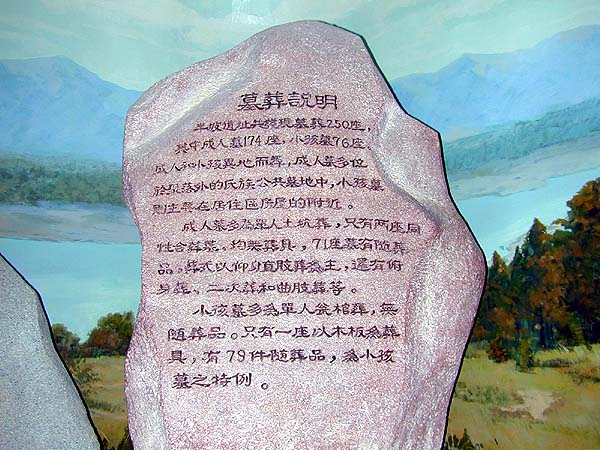 墓葬說明
半坡遺址共發現墓葬250座，
其中成人墓174座，小孩墓76座。
成人和小孩異地而葬，成人墓多位
於聚落外的氏族公共墓地中，小孩墓
則主葬在居住區房屋的附近。
成人墓多為單人土坑葬，只有兩座同
性合葬墓。均無葬具，71座墓有隨葬
品。葬式以仰身直肢葬為主，還有俯
身葬、二次葬和曲肢葬等。
小孩墓多為單人瓮棺葬，無
隨葬品。只有一座以木板為葬
具，有79件隨葬品，為小孩
墓之特例。